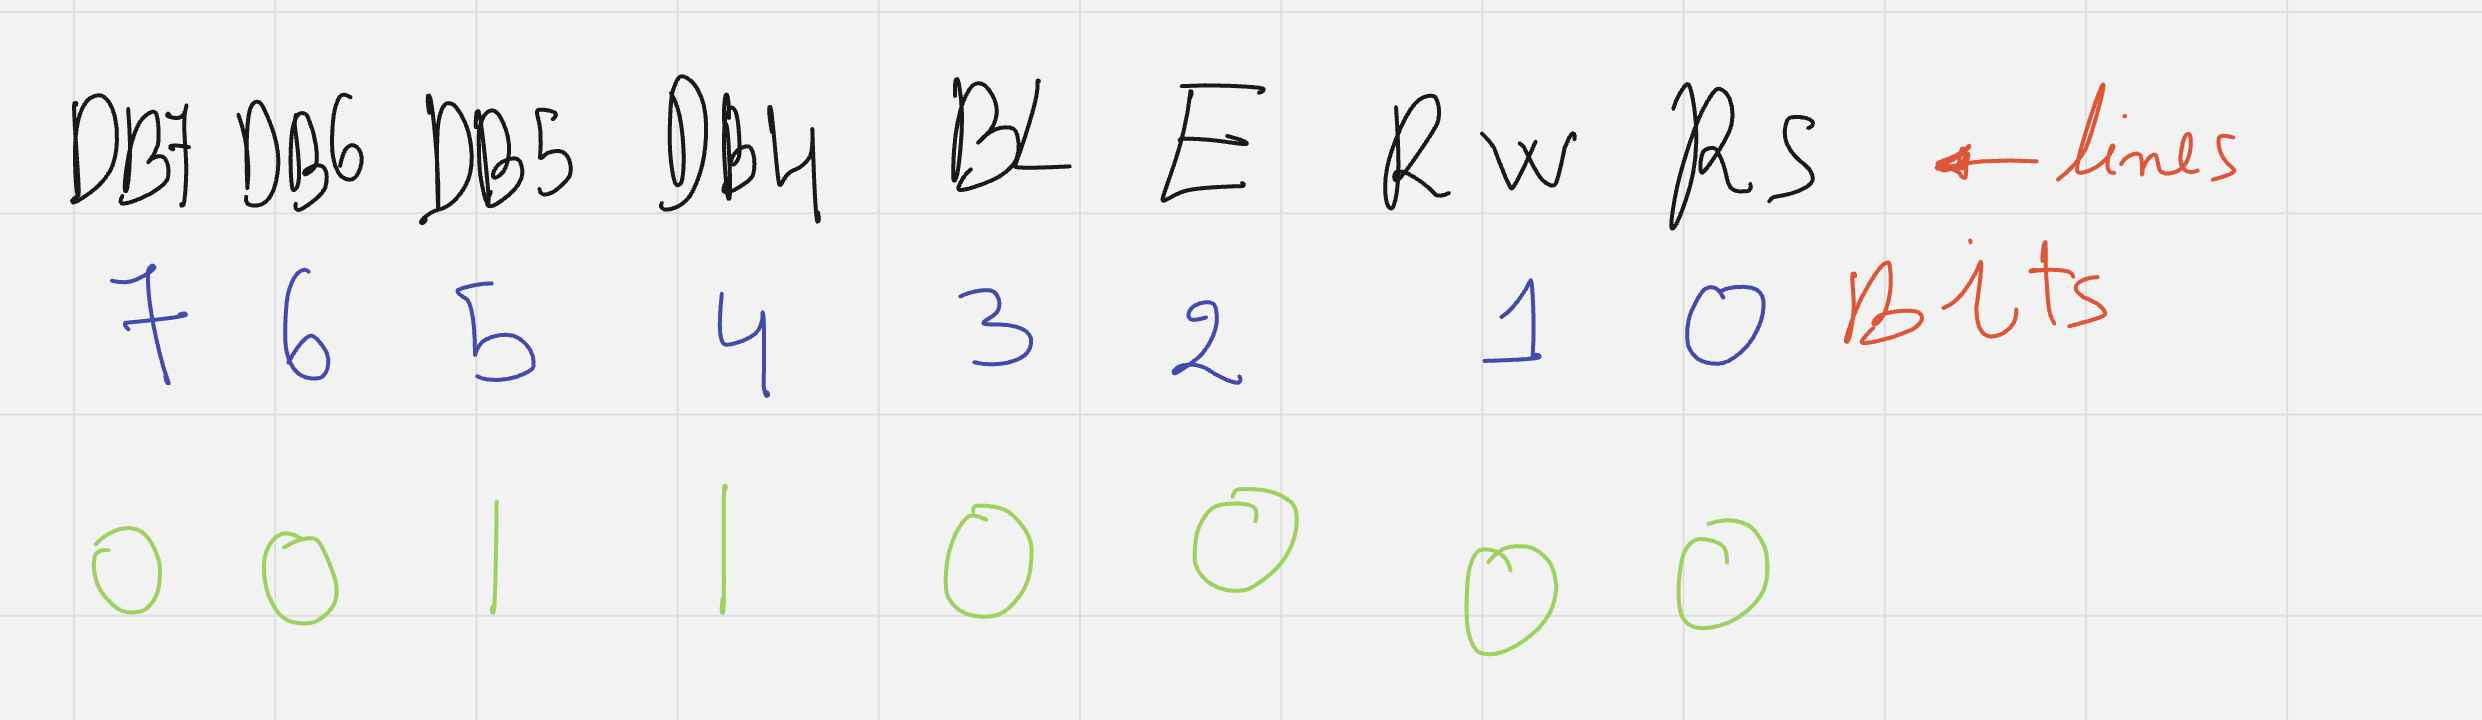 DB7 DB6 DB5 DB4 BL E RW RS ← lines
7 6 5 4 3 2 1 0 Bits
0 0 1 1 0 0 0 0